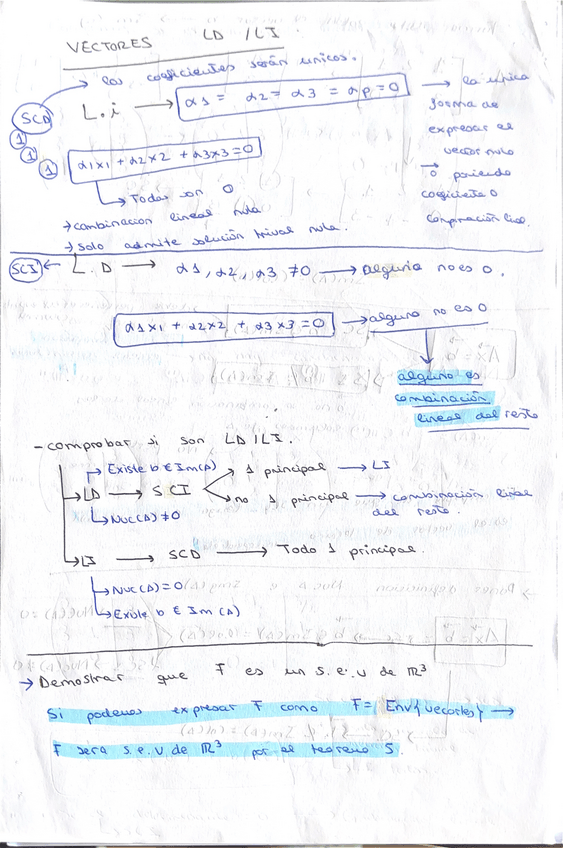 VECTORES LD / LI.
→ los coeficientes serán unicos.
SCD L.i → α1 = α2 = α3 = αp = 0 → la unica
forma de
expresar el
vector nulo
0 poniendo
coeficiente 0
1
1
1
α1x1 + α2x2 + α3x3 = 0
→ Todas son 0
→ combinacion lineal nula
→ Solo admite solución trival nula.
SCI ← L.D → α1, α2, α3 ≠ 0 → Alguna no es 0.
α1x1 + α2x2 + α3x3 = 0 → alguno no es 0
alguno es
combinación
lineal del resto
- comprobar si son LD / LI.
→ Existe b ∈ Im(A)
→ LD → SCI
→ 1 principal → LI
→ no 1 principal → combinación lineal
del resto.
→ Nuc(A) ≠ 0
→ LI → SCD → Todo 1 principal.
→ Nuc(A) = 0
→ Existe b ∈ Im(A)
→ Demostrar que F es un s.e.v de ℝ³
Si podemos expresar F como F = Env{vectores} →
F será s.e.v. de ℝ³ por el teorema 5.